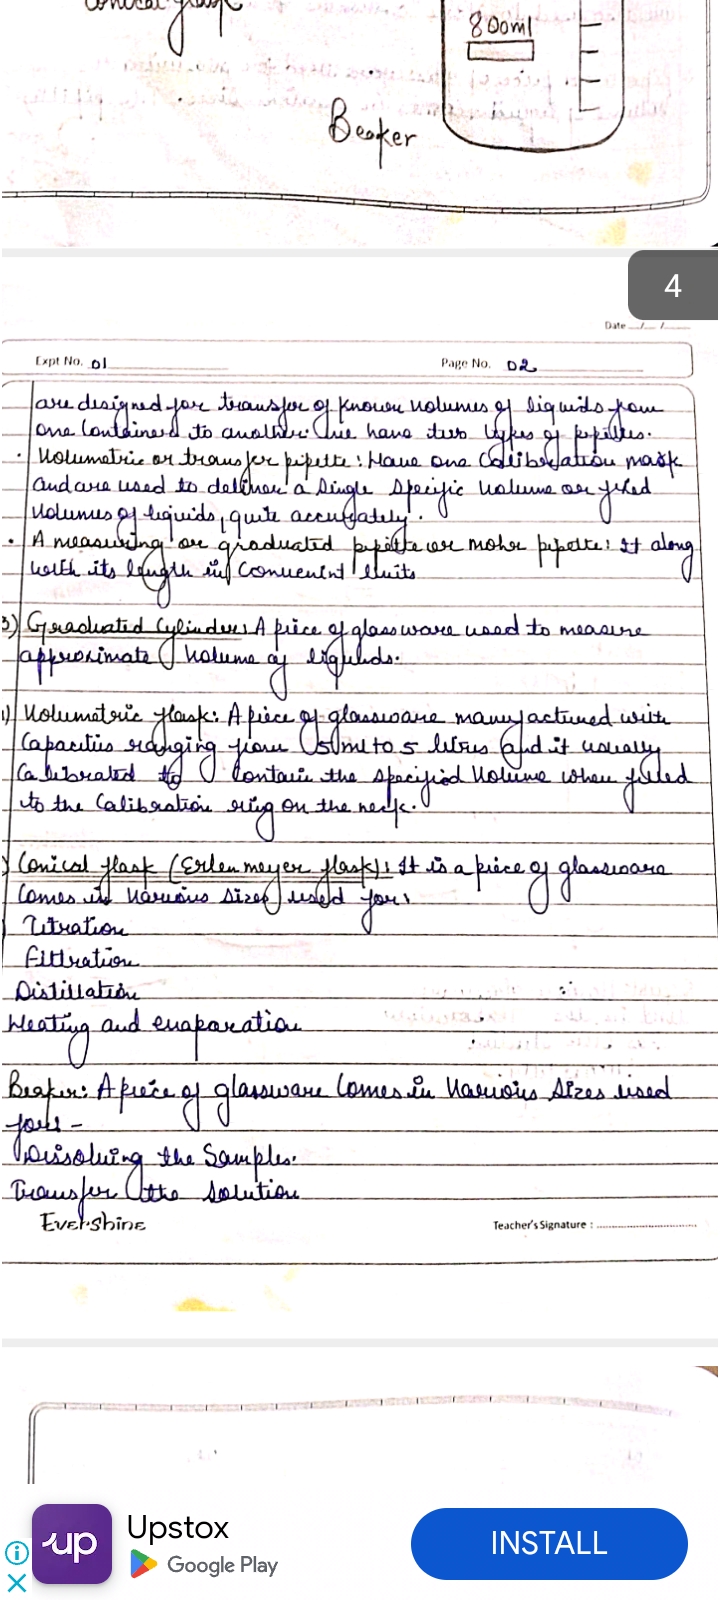 800ml
Beaker
4
Date
Expt No. 01
Page No. 02
are designed for transfer of known volumes of liquids from
one container to another. We have two types of pipettes.
• Volumetric or transfer pipette: Have one Caliberation mark
and are used to deliver a single specific volume or fixed
volumes of liquids, quite accurately.
• A measuring or graduated pipette or mohr pipette: It along
with its length in convenient units
3) Graduated Cylinder: A piece of glassware used to measure
approximate volume of liquids.
Volumetric flask: A piece of glassware manufactured with
Capacities ranging from 5ml to 5 litres and it usually
Calebrated to Contain the specified volume when filled
to the Calibration ring on the neck.
Conical flask (Erlenmeyer flask): It is a piece of glassware
Comes in various sizes used for:
Titration
Filtration
Distillation
Heating and evaporation
Beaker: A piece of glassware Comes in various sizes used
for: -
Dissolving the Samples.
Transfer the solution
Evershine
Teacher's Signature :
up
Upstox
Google Play
INSTALL